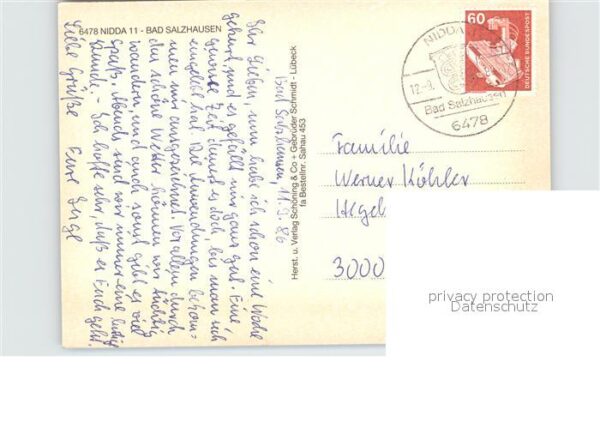 6478 NIDDA 11 - BAD SALZHAUSEN
Bad Salzhausen, 11.9.86
Ihr Lieben, nun habe ich schon eine Woche
gekurt, und es gefällt mir ganz gut. Eine
gewisse Zeit dauert es doch, bis man sich
eingelebt hat. Die Anwendungen bekom-
men mir ausgezeichnet. Vor allem durch
das schöne Wetter können wir tüchtig
wandern, und auch sonst gibt es viel
Spaß. Abends sind wir immer eine lustige
Runde. - Ich hoffe sehr, daß es Euch geht.
Liebe Grüße Eure
Herst. u. Verlag Schöning & Co + Gebrüder Schmidt - Lübeck
fa Bestellnr. Sahau 453
NIDDA
12.-9.
Bad Salzhausen
6478
60
DEUTSCHE BUNDESPOST
Familie
Werner Köhler
Hegel
3000
privacy protection
Datenschutz